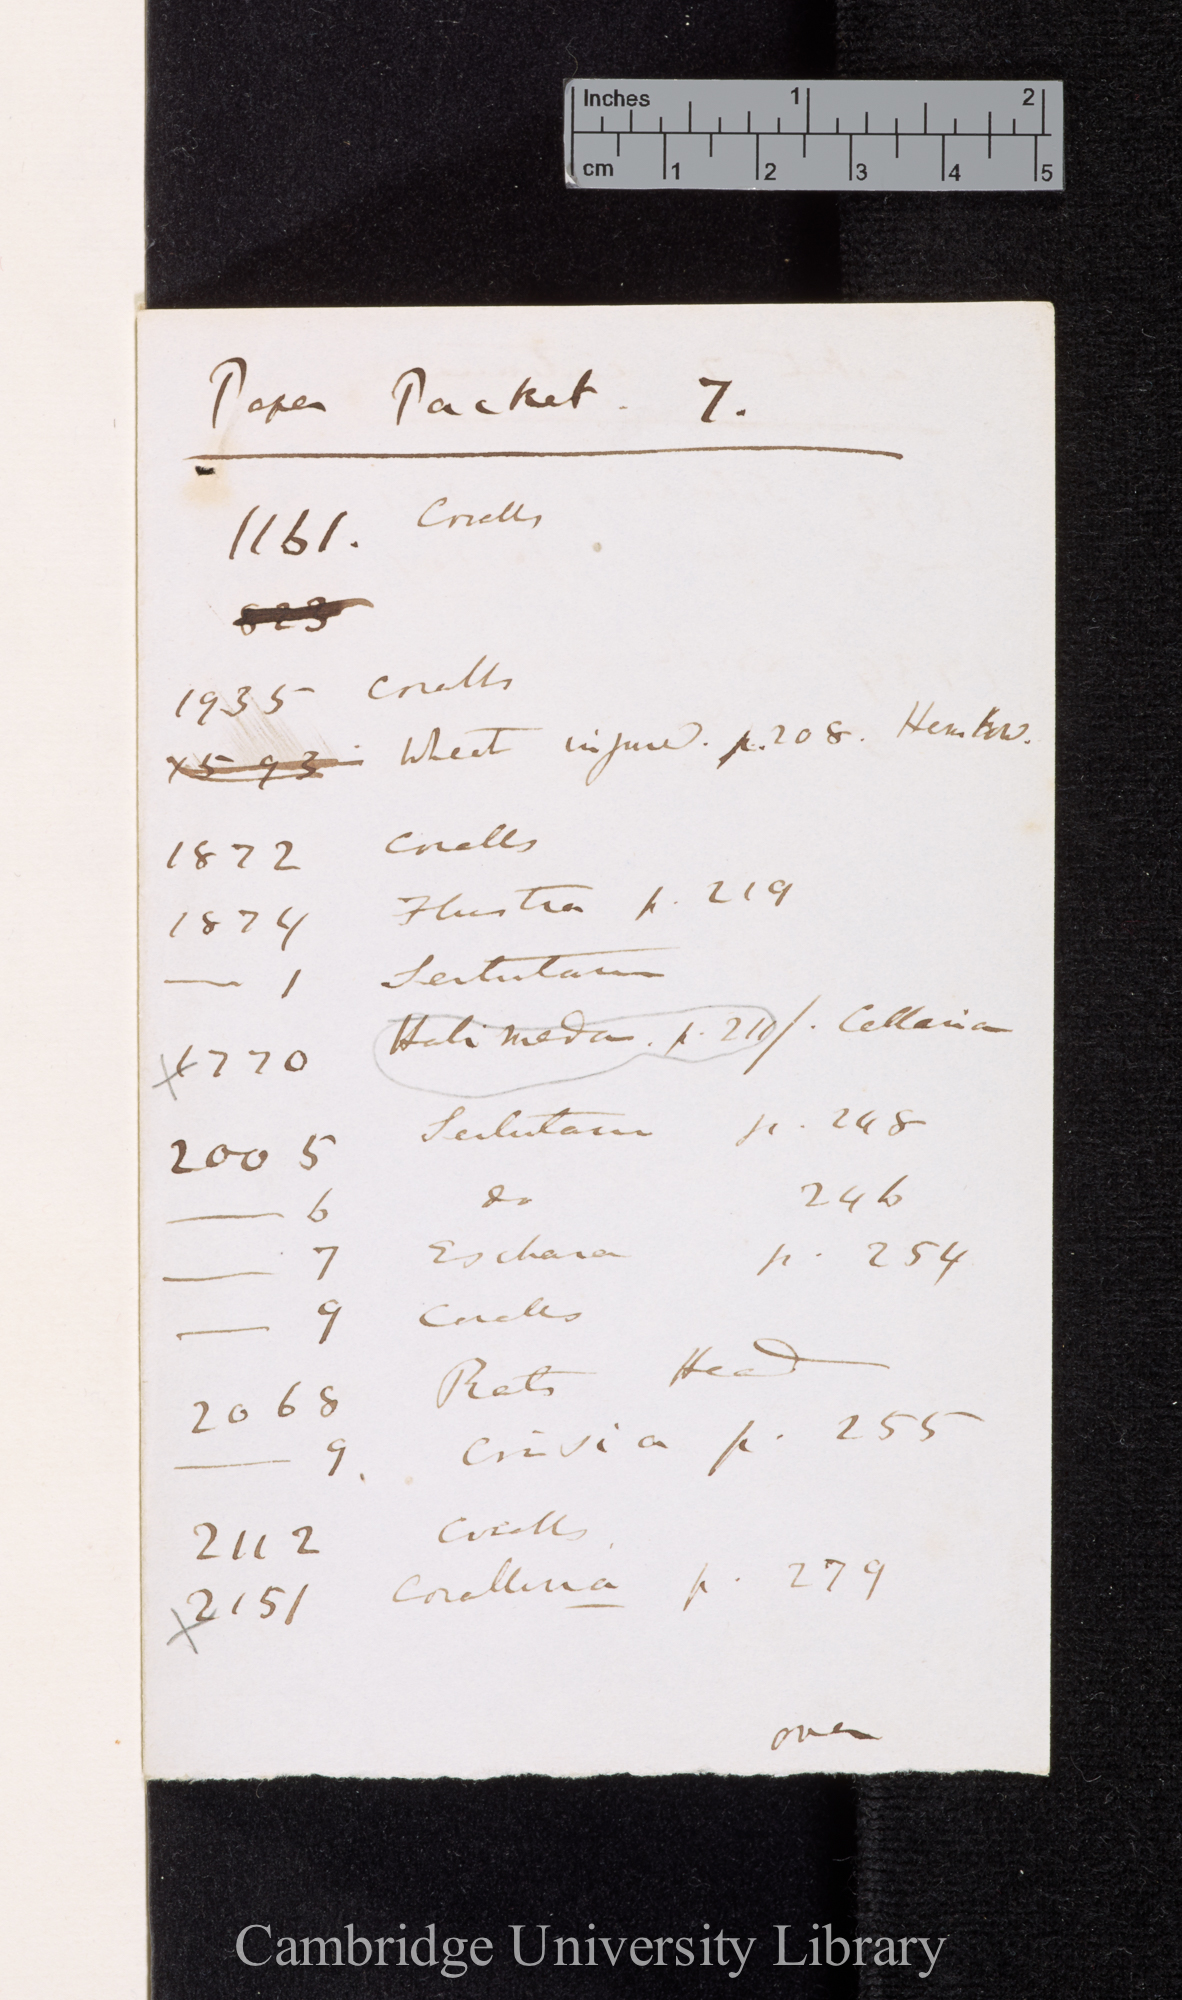 Inches 1 2
cm 1 2 3 4 5
Paper Packet. 7.
1161. Coralls
823
1935 Coralls
X 593 Wheat injured. p.208. Henslow.
1872 Coralls
1874 Flustra p. 219
— 1 Sertularia
X 1770 Halimeda. p. 211/. Cellaria
2005 Sertularia p. 248
— 6 do 246
— 7 Eschara p. 254
— 9 Coralls
2068 Rats Head
— 9. Crisia p. 255
2112 Coralls
X 2151 Corallina p. 279
over
Cambridge University Library